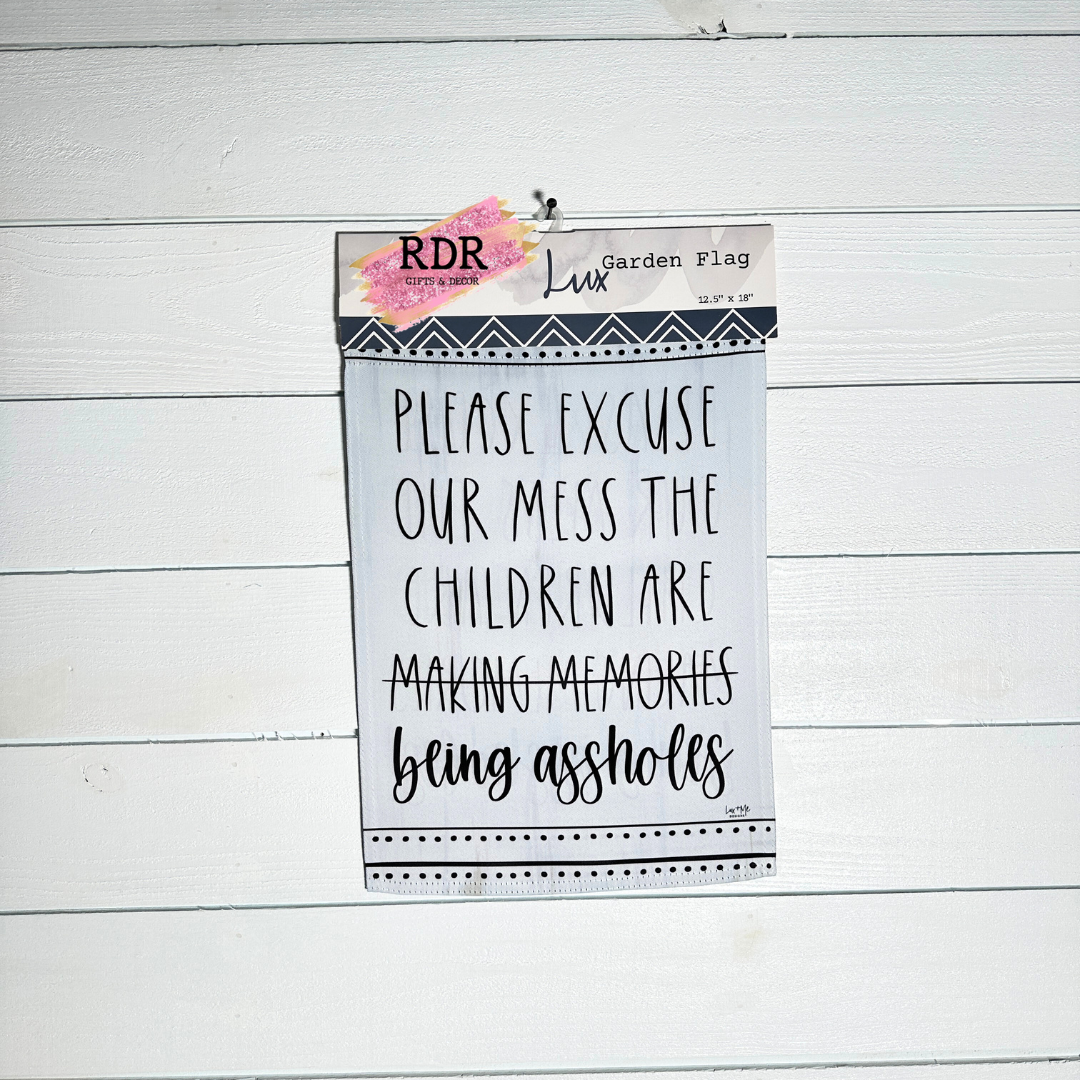 RDR
GIFTS & DECOR
Lux Garden Flag
12.5" x 18"
PLEASE EXCUSE
OUR MESS THE
CHILDREN ARE
MAKING MEMORIES
being assholes
Lux + Me
DESIGNS